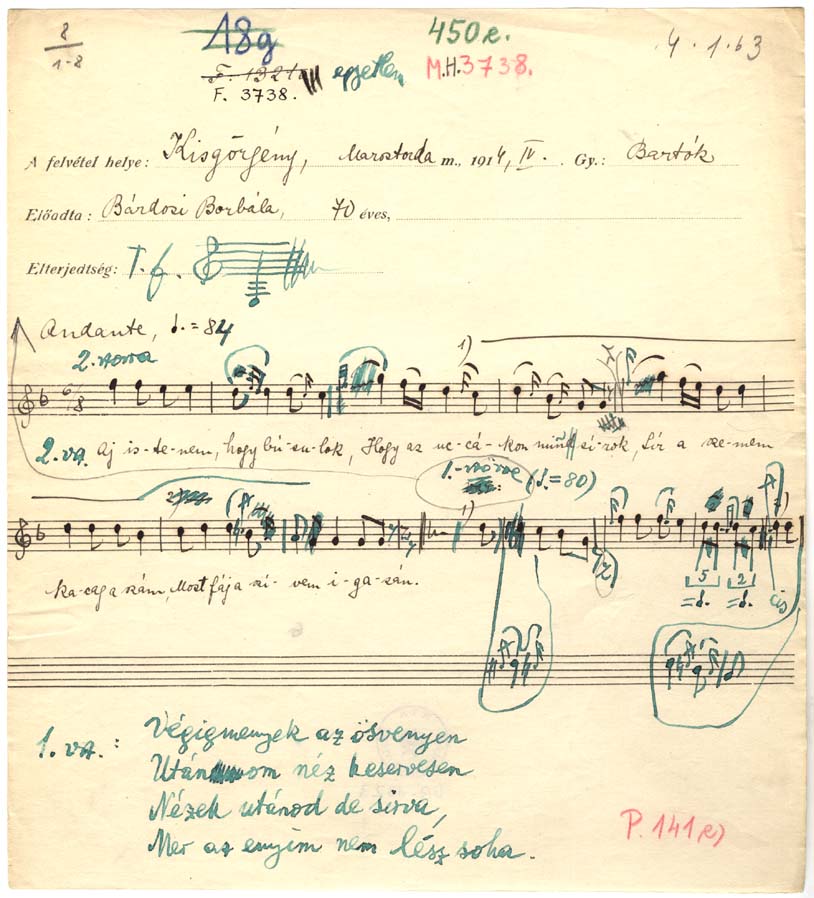 8
1-8
18g
450e.
4.1.63
F. 1321a
egyetlen
M.H.3738.
F. 3738.
A felvétel helye: Kisgörgény, Marostorda m., 1914, IV. Gy.: Bartók
Előadta: Bárdosi Borbála, 70 éves,
Elterjedtség: T. f.
Andante, ♩. = 84
2. versa
1)
6/8
2. va. Aj is-te-nem, hogy bú-su-lok, Hogy az uc-cá-kon min si-rok, Sír a sze-mem
(♩.=80)
1)
ka-cag a szám, Most fáj a szi-vem i-ga-zán.
5
2
=♩.
=♩.
cis
1. va.: Végigmenyek az ösvenyen
néz keservesen
Nézek utánod de sirva,
Mer az enyim nem lész soha.
P. 141e)